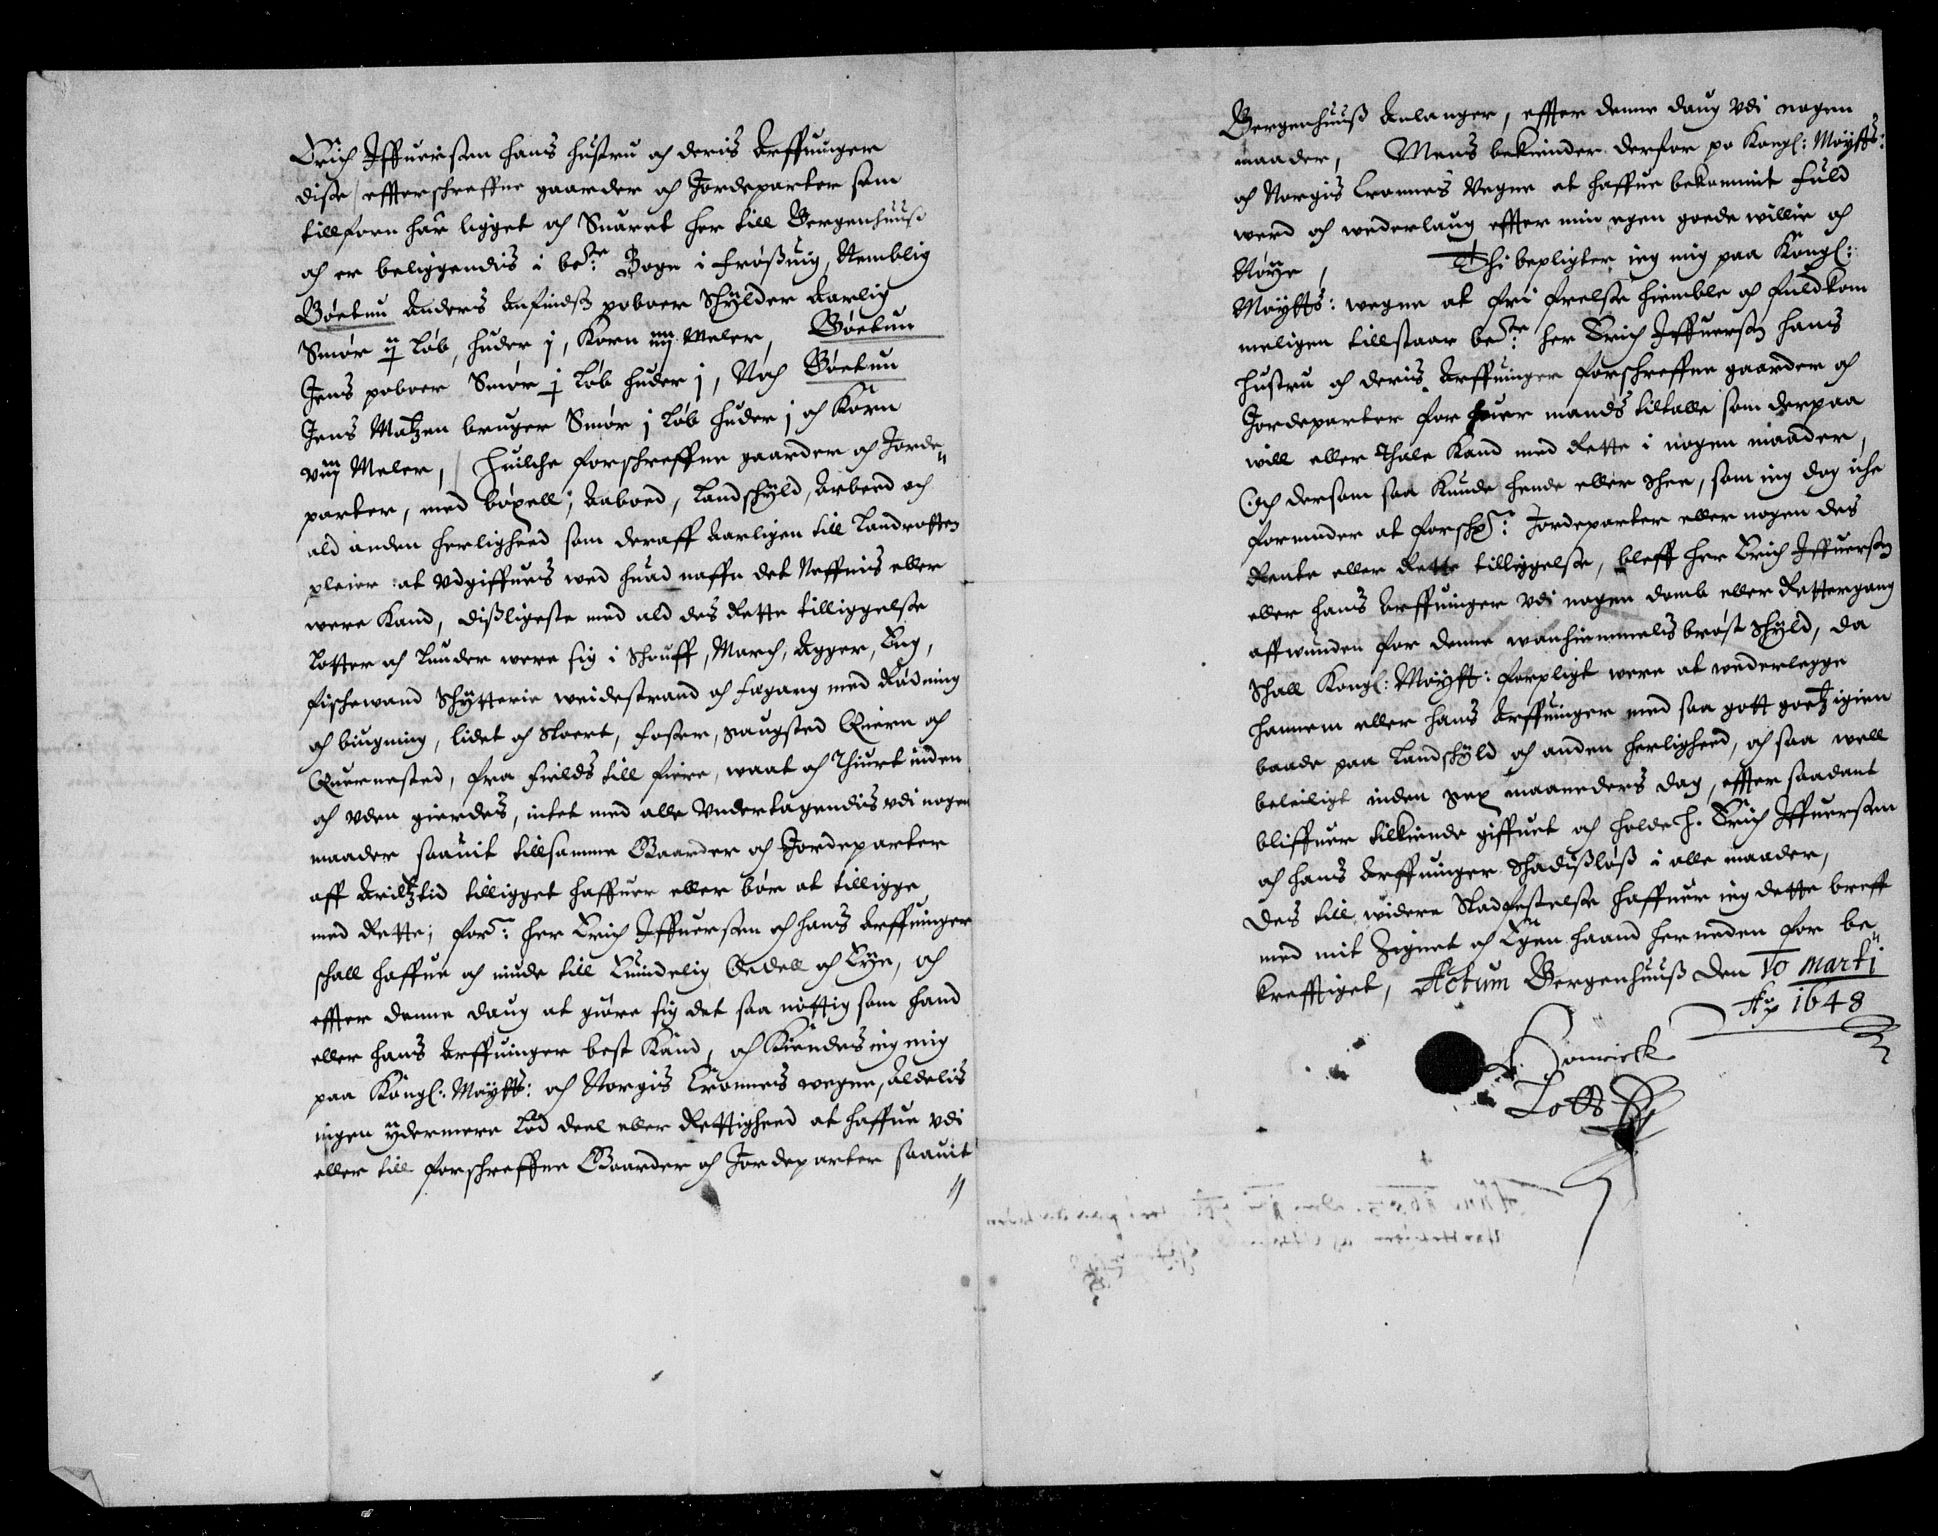 Erich Iffuersøn hans hustru och deris Arffuinger
disse effterschreffne gaarder och Jordeparter som
tillforn har ligget och Suaret her till Bergenhuuß
och er beliggendis i beste: Sogn i Frøßuig, Nemblig
Bøetun Anders Anfindß paboer Schylder Aarlig
Smør ij løb, huder j, Korn iiij Meler, Bøetun
Jens paboer Smør j løb huder j, Noch Bøetun
Jens Matzen bruger Smør j løb huder j och Korn
viij Meler, Huilche forschreffne gaarder och Jorde„
parter, med bøxell, Aaboed, Landschyld, Arbeed och
ald anden herligheed som deraff Aarligen till Landrotten
pleier at vdgiffues wed huad naffn det Neffnis eller
were kand, dißligeste med ald des Rette tilliggelse
Lotter och Lunder were sig i Schouff, March, Agger, Eng,
fischewand Schytterie weidestrand och fægang med Rødning
och biugning, lidet och Stoert, foßer, Saugsted Quern och
Quernested, fra fields till fiere, waat och Thiurt inden
och vden gierdes, intet med alle vndertagendis vdi nogen
maader saauit tillsamme Gaarder och Jordeparter
aff Arildtztid tilligget haffuer eller bør at tilligge
med Rette, fors: her Erich Iffuersøn och hans Arffuinger
schall haffue och niude till Euindelig Oedell och Eye, och
effter denne daug at giøre sig det saa nøttig som hand
eller hans Arffuinger best kand, och Kiendes ieg mig
paa Kongl: Maytts: och Norgis Cronnes wegne, aldelis
ingen ydermere lod deel eller Rettigheed at haffue vdi
eller till forschreffne Gaarder och Jordeparter saauit
Bergenhuuß Anlanger, effter denne daug vdi nogen
maader, Mens bekiender derfor po Kongl: Maytts:
och Norgis Cronnes Vegne at haffue bekommit fuld
werd och wederlaug effter min egen goede willie och
Nøye, Thi bepligter ieg mig paa Kongl:
Maytts: wegne at fri frelse hiemble och fuldkom
meligen tillstaar beste: her Erich Iffuersøn hans
hustru och deris Arffuinger forschreffne gaarder och
Jordeparter for huer mands tiltalle som derpaa
will eller Thale kand med Rette i nogen maader,
Och dersom saa kunde hende eller schee, som ieg dog iche
formoder at forsch: Jordeparter eller nogen des
Rente eller Rette tilliggelse, bleff her Erich Iffuersøn
eller hans Arffuinger vdi nogen domb eller Rettergang
affwunden for denne wanhiemmelis brøst schyld, da
Schall Kongl: Maytt: forpligt were at wederlegge
hannem eller hans Arffuinger med saa gott goetz igien
baade paa Landschyld och anden herligheed, och saa well
beleiligt inden Sex maaneders dag, effter saadant
bliffuer tilkiende giffuet och holde H. Erich Iffuersøn
och hans Arffuinger Schadisløß i alle maader,
Des till widere Stadfestelse haffuer ieg dette breff
med mit Zignet och Egen haand herneden for be„
krefftiget, Actum Bergenhuuß den 10 Marti
Ao 1648